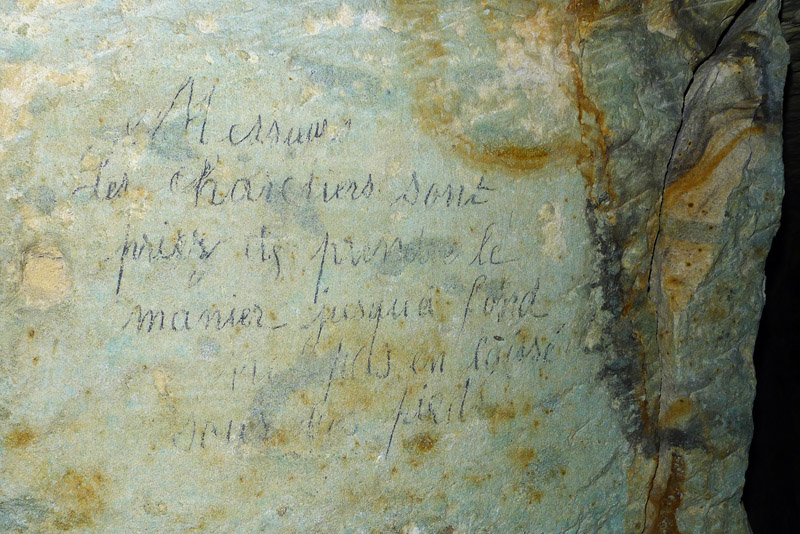 Messieurs
les chargeurs sont
priez de prendre le
manier jusqu'à fond
pas en laisser
sous les pieds